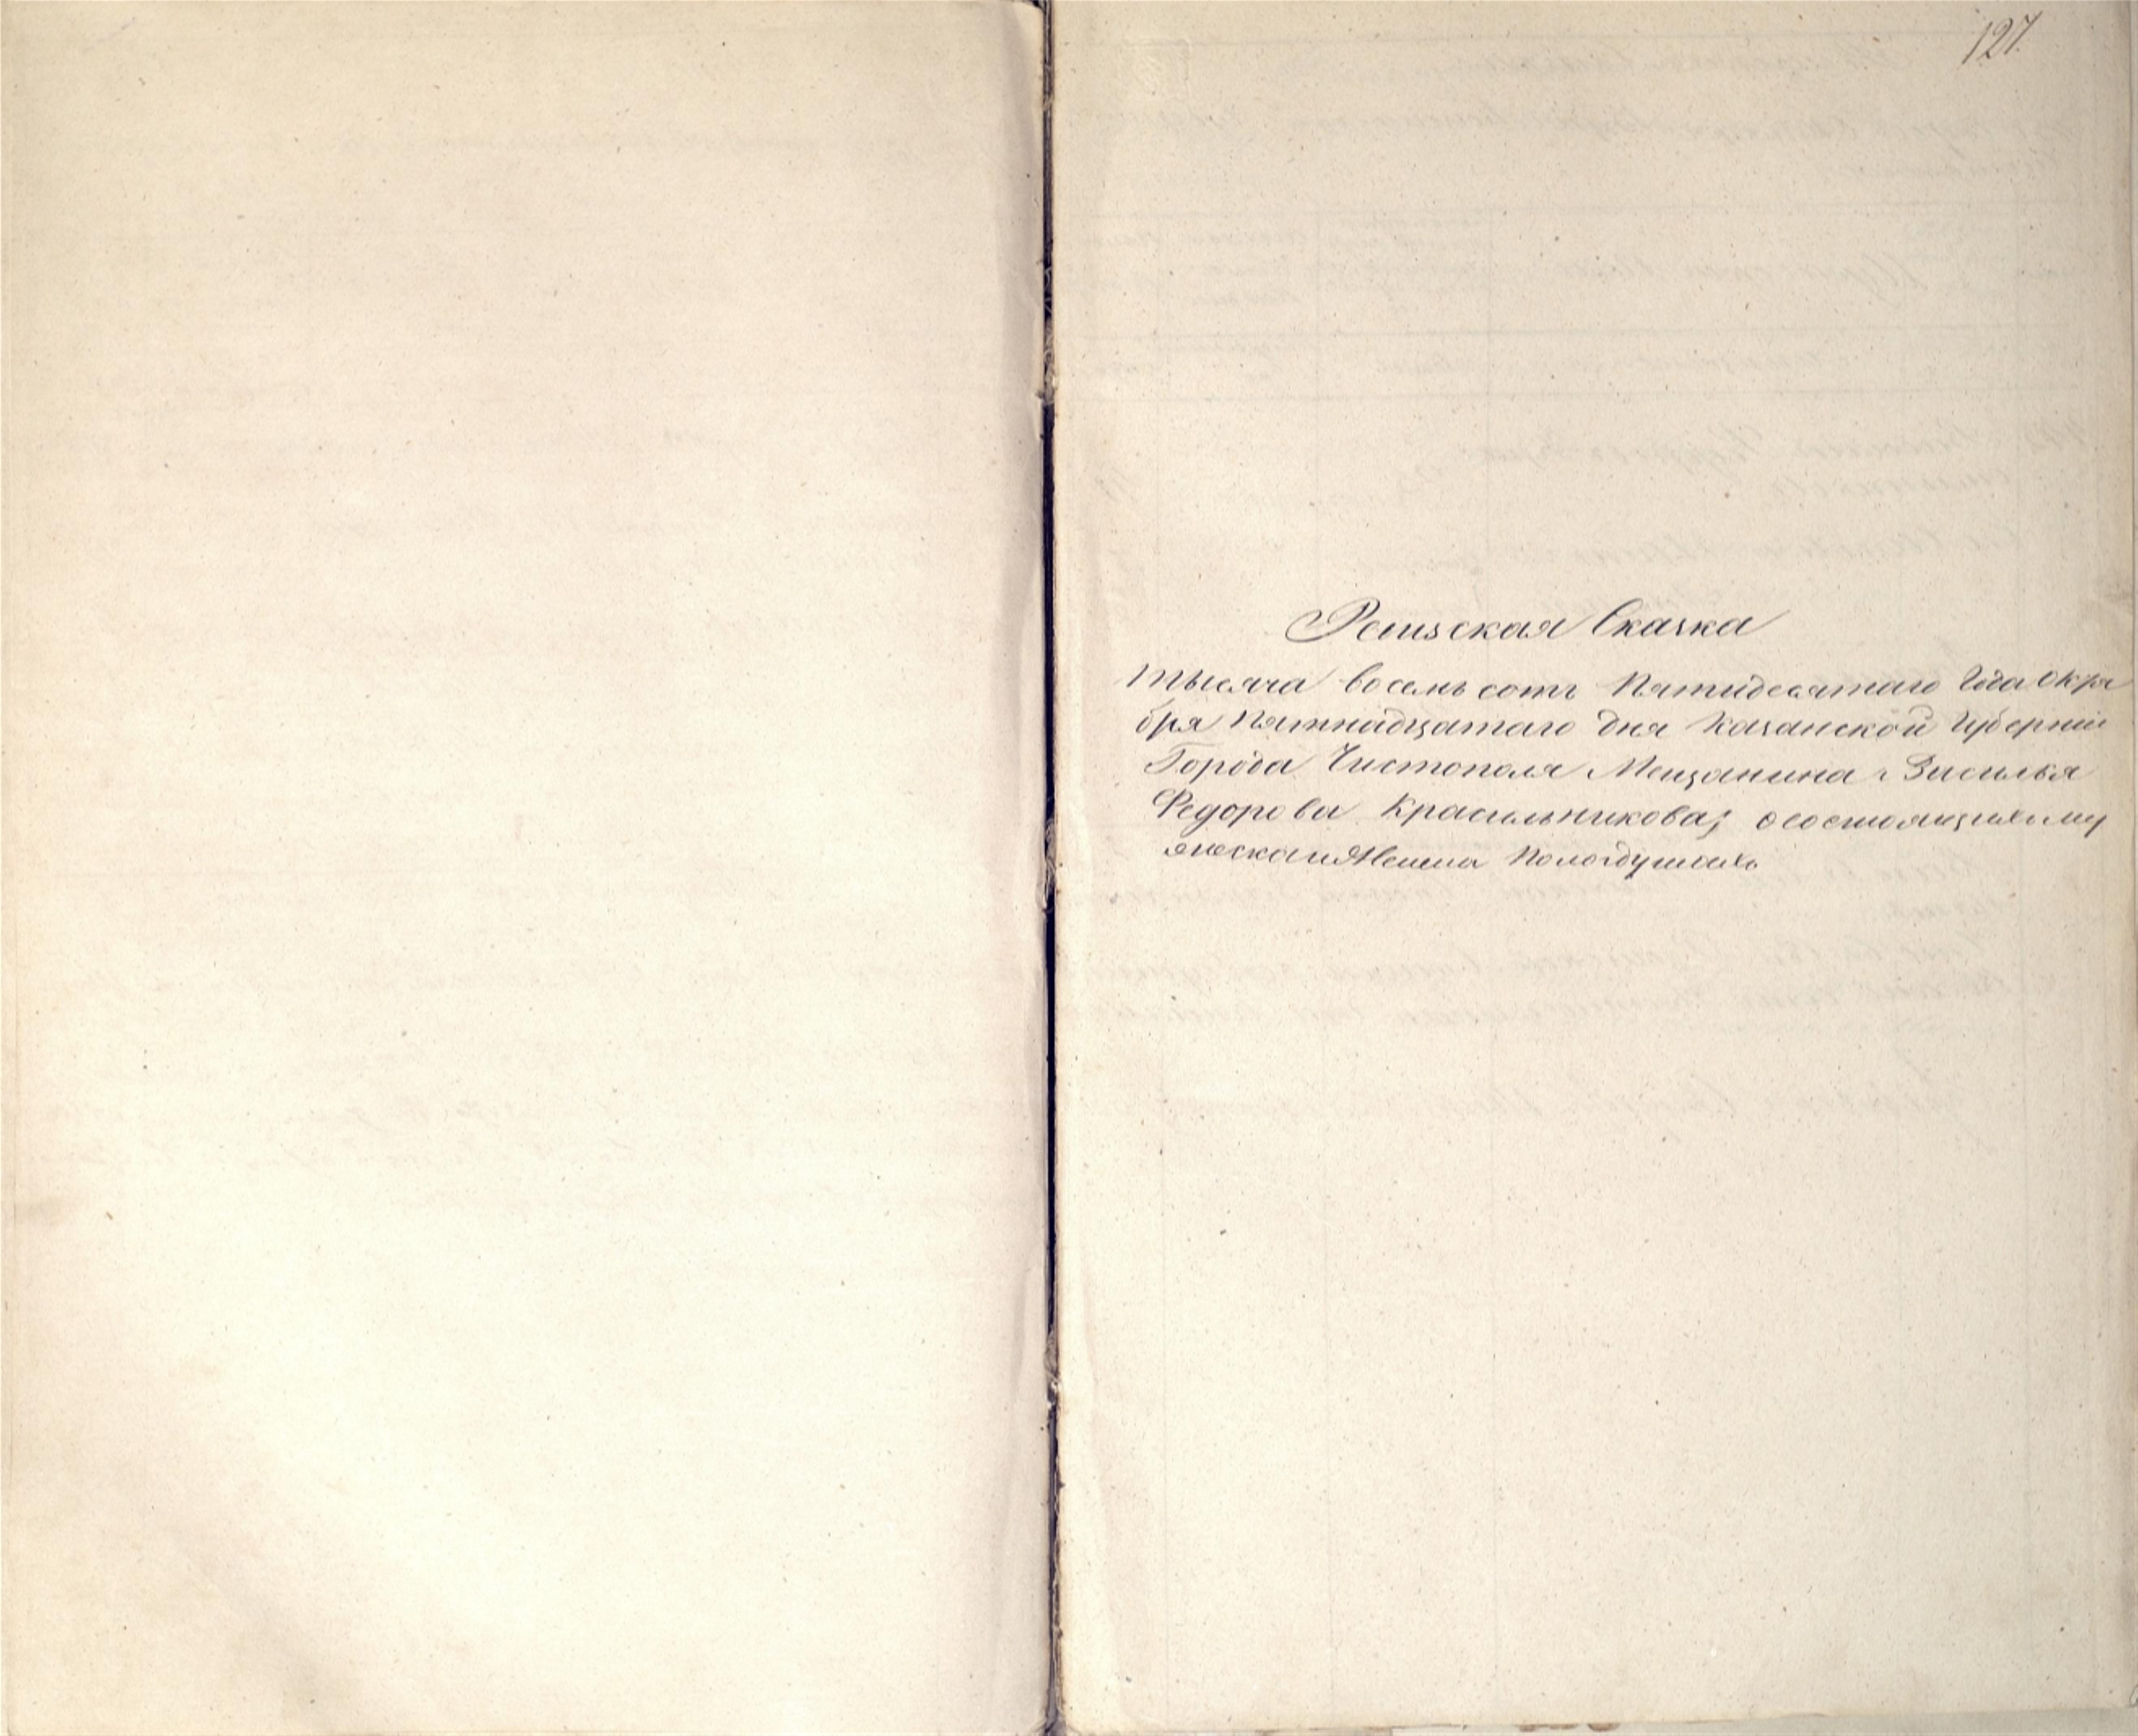 127.
Ревизская Сказка
тысяча восемь сотъ Пятидесятаго Года Октя
бря Пятнадцатаго дня Казанской Губерніи
Города Чистополя Мещанина Василья
Федорова Красильникова, о состоящихъ му
жеска и Женска Пола душахъ